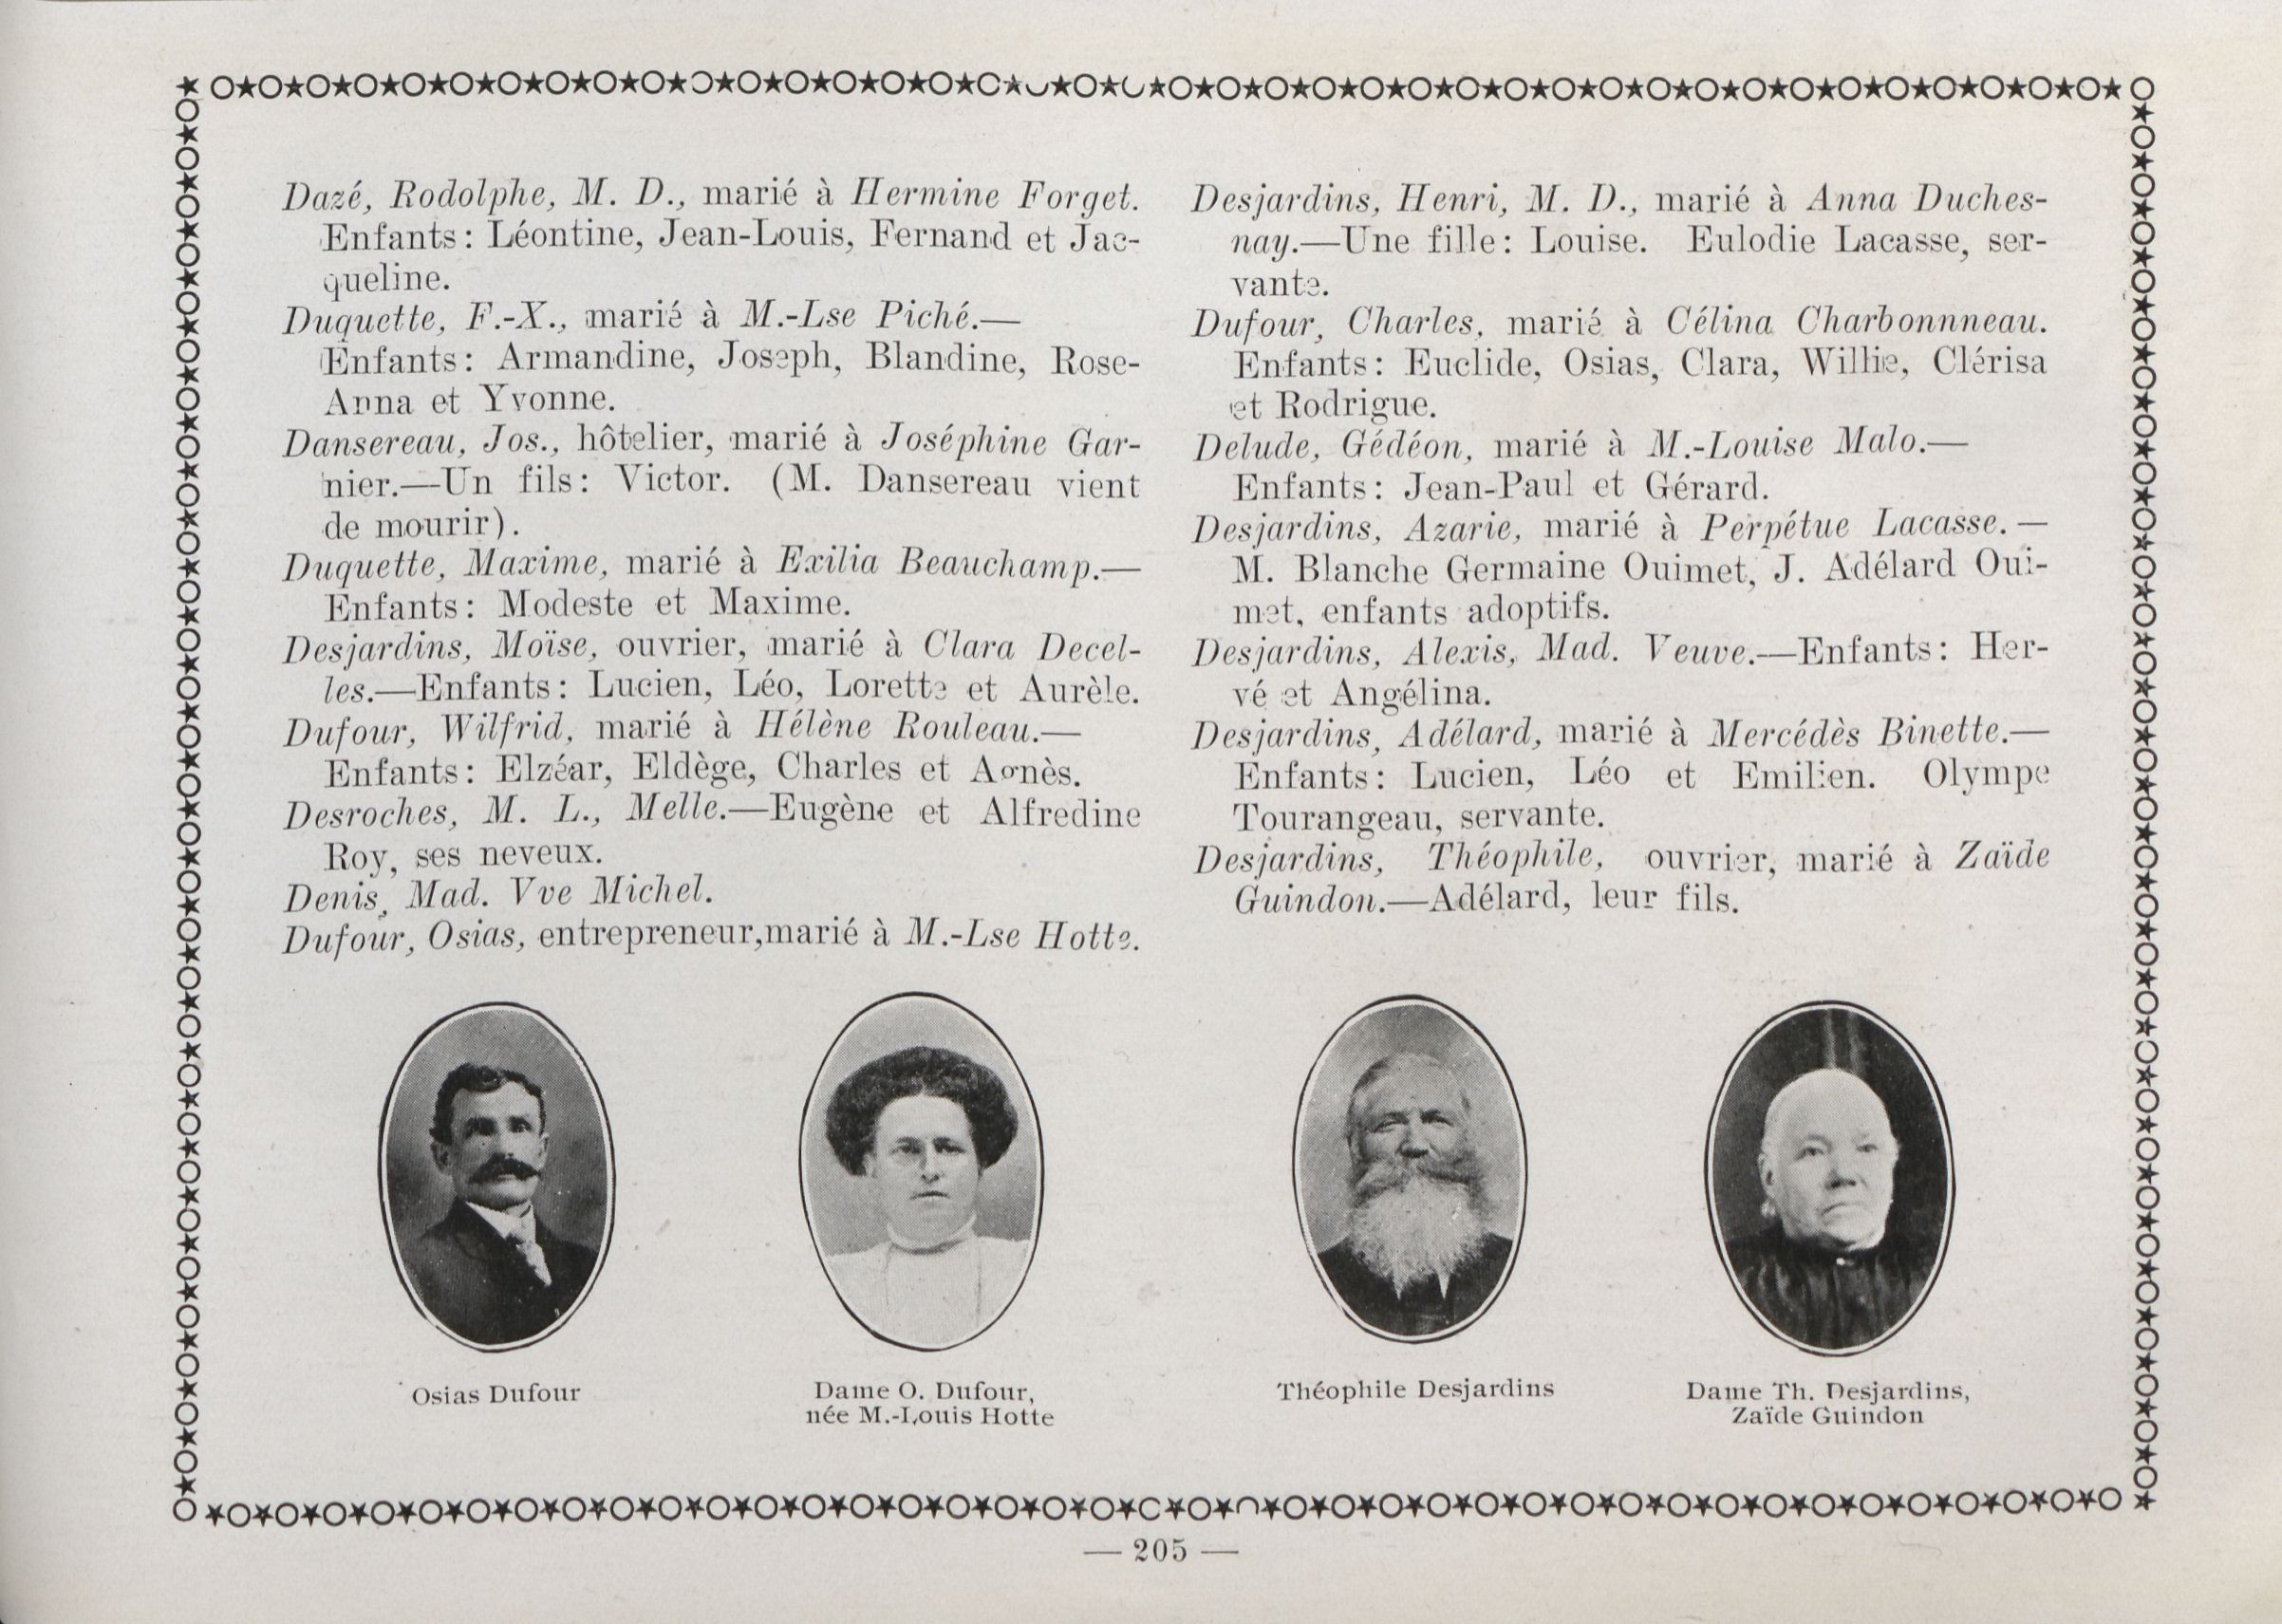 Dazé, Rodolphe, M. D., marié à Hermine Forget.
Enfants: Léontine, Jean-Louis, Fernand et Jac-
queline.
Duquette, F.-X., marié à M.-Lse Piché.—
Enfants: Armandine, Joseph, Blandine, Rose-
Anna et Yvonne.
Dansereau, Jos., hôtelier, marié à Joséphine Gar-
nier.—Un fils: Victor. (M. Dansereau vient
de mourir).
Duquette, Maxime, marié à Exilia Beauchamp.—
Enfants: Modeste et Maxime.
Desjardins, Moïse, ouvrier, marié à Clara Decel-
les.—Enfants: Lucien, Léo, Lorette et Aurèle.
Dufour, Wilfrid, marié à Hélène Rouleau.—
Enfants: Elzéar, Eldège, Charles et Agnès.
Desroches, M. L., Melle.—Eugène et Alfredine
Roy, ses neveux.
Denis, Mad. Vve Michel.
Dufour, Osias, entrepreneur,marié à M.-Lse Hotte.
Desjardins, Henri, M. D., marié à Anna Duches-
nay.—Une fille: Louise. Eulodie Lacasse, ser-
vante.
Dufour, Charles, marié à Célina Charbonnneau.
Enfants: Euclide, Osias, Clara, Willie, Clérisa
et Rodrigue.
Delude, Gédéon, marié à M.-Louise Malo.—
Enfants: Jean-Paul et Gérard.
Desjardins, Azarie, marié à Perpétue Lacasse.—
M. Blanche Germaine Ouimet, J. Adélard Oui-
met, enfants adoptifs.
Desjardins, Alexis, Mad. Veuve.—Enfants: Her-
vé et Angélina.
Desjardins, Adélard, marié à Mercédès Binette.—
Enfants: Lucien, Léo et Emilien. Olympe
Tourangeau, servante.
Desjardins, Théophile, ouvrier, marié à Zaïde
Guindon.—Adélard, leur fils.
Osias Dufour
Dame O. Dufour,
née M.-Louis Hotte
Théophile Desjardins
Dame Th. Desjardins,
Zaïde Guindon
— 205 —